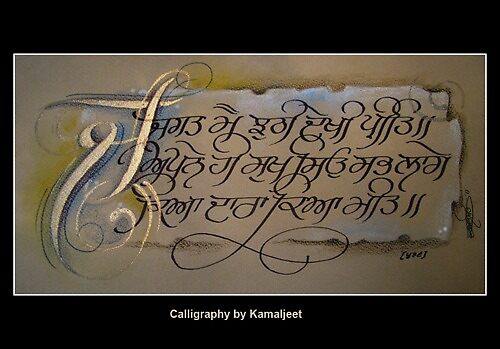 ਜਗਤ ਮੈ ਝੂਠੀ ਦੇਖੀ ਪ੍ਰੀਤਿ॥
ਅਪਨੇ ਹੀ ਸੁਖ ਸਿਉ ਸਭ ਲਾਗੇ
ਕਿਆ ਦਾਰਾ ਕਿਆ ਮੀਤ॥
Calligraphy by Kamaljeet